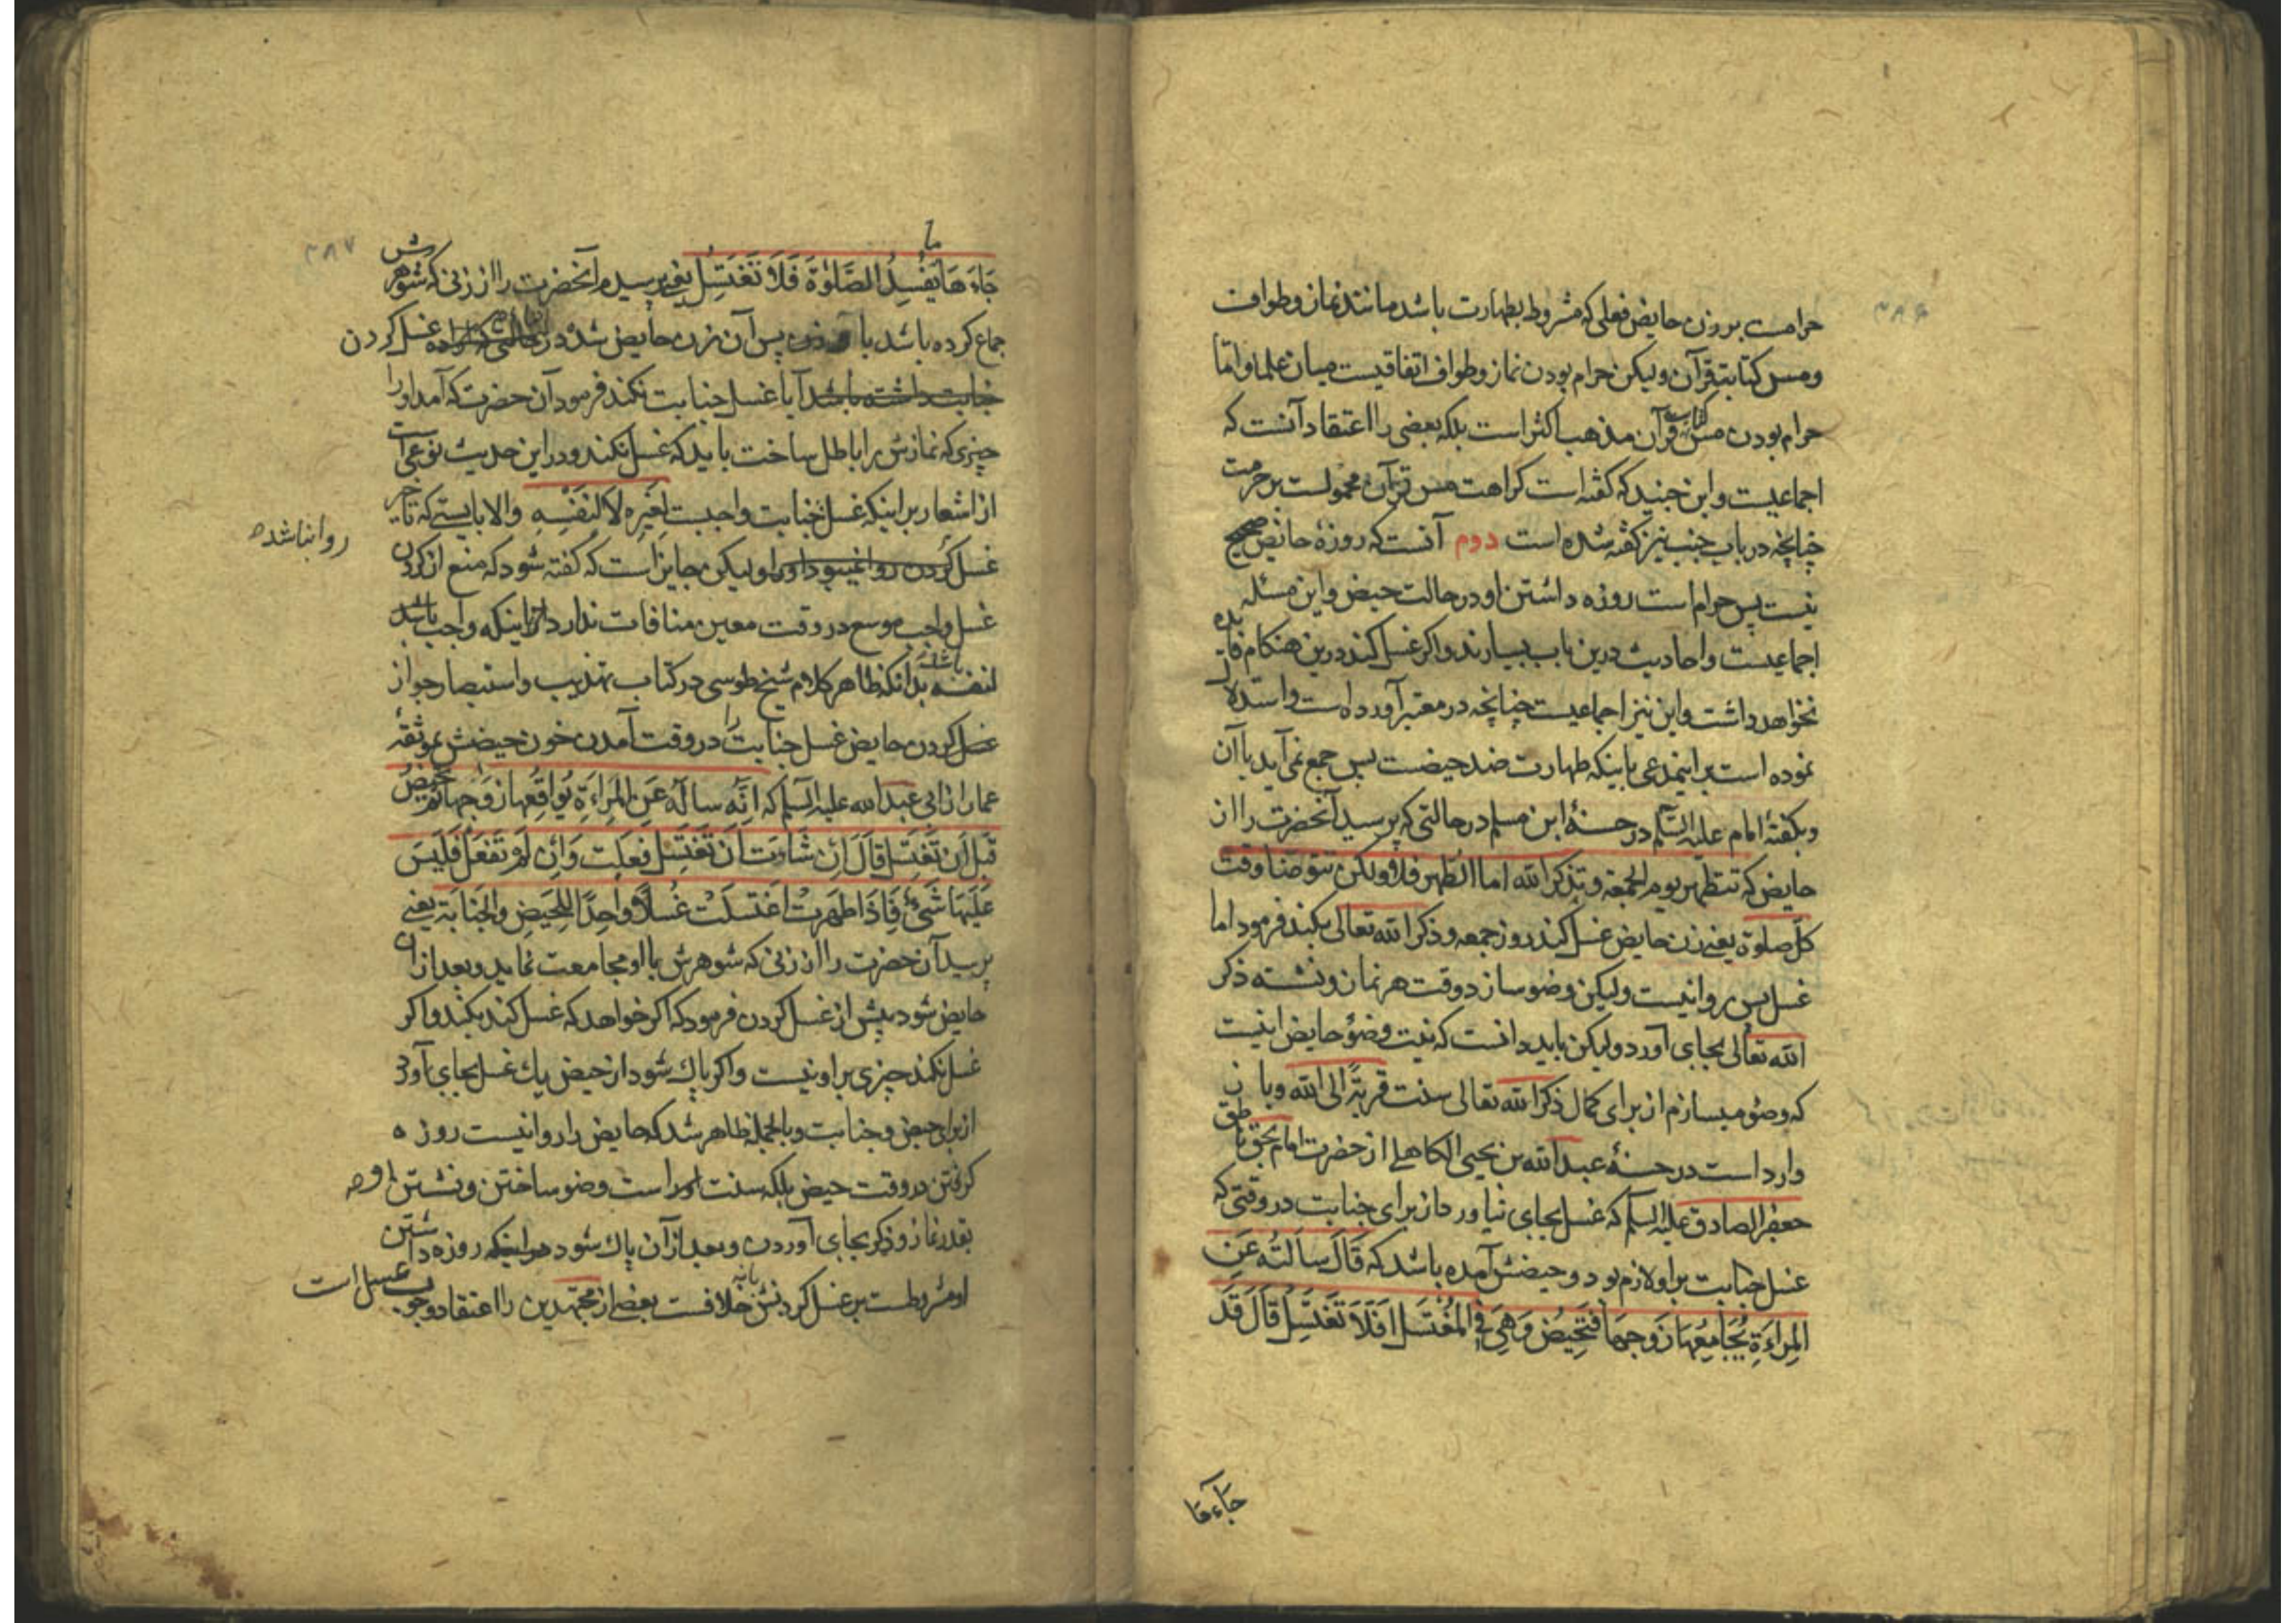 حرامست بر زن حایض فعلی که مشروط بطهارت باشد مانند نماز و طواف
و مس کتابت قرآن ولیکن حرام بودن نماز و طواف اتفاقیست میان علما و اما
حرام بودن مس کتابت قرآن مذهب اکثر است بلکه بعضی را اعتقاد آنست که
اجماعیست و ابن جنید که کفته است کراهت مس قرآن محمولست بر حرمت
چنانچه در باب جنب نیز کفته شده است دوم آنست که روزهٔ حایض صحیح
نیست پس حرام است روزه داشتن او در حالت حیض و این مسئله
اجماعیست و احادیث درین باب بسیارند و اکر غسل کند درین هنکام فایده
نخواهد داشت و این نیز اجماعیست چنانچه در معتبر آورده است و استدلال
نموده است بر اینمدعی باینکه طهارت ضد حیضست پس جمع نمی آید با آن
و بکفتهٔ امام علیه السلم در حسنهٔ ابن مسلم در حالتی که پرسید آنحضرت را از
حایض که تتطهر یوم الجمعة و تذکر الله اما الطهر فلا ولکن تتوضا وقت
کل صلوة یعنی زن حایض غسل کند روز جمعه و ذکر الله تعالی بکند فرمود اما
غسل پس روا نیست ولیکن وضو سازد وقت هر نماز و نشسته ذکر
الله تعالی بجای آورد ولیکن باید دانست که نیت وضوٴ حایض اینست
که وضو میسازم از برای کمال ذکر الله تعالی سنت قربة الی الله و باز
وارد است در حسنهٔ عبدالله بن یحیی الکاهلی از حضرت امام بحق ناطق
جعفر الصادق علیه السلم که غسل بجای نیاورد از برای جنابت در وقتی که
غسل جنابت بر او لازم بود و حیضش آمده باشد که قَالَ سَاَلتُه عَنِ
المِراَءَةِ یُجَامِعُهَا زَوجِهَا فَتَحِیْضُ وَهِیَ فِی المُغْتَسَل اَفَلَا تَغتَسِلُ قَالَ قَد
جاءها
جَاءَ هَا مَا یُفسِدُ الصَّلوٰةَ فَلَا تَغتَسِلُ یعنی پرسیدم آنحضرت را از زنی که شوهرش
جماع کرده باشد با پس آن زن حایض شد در غسل کردن
آیا غسل جنابت نکند فرمود آن حضرت که آمد او را
چیزی که نمازش را باطل ساخت باید که غسل نکند و در این حدیث نوعی است
از اشعار بر اینکه غسل جنابت واجبست لغیرِه لا لِنَفْسِهِ والا بایستی که تاخیر
غسل کردن ولیکن جایز است که کفته شود که منع از کردن
روا نباشد
غسل واجب موسع در وقت معین منافات ندارد از اینکه واجب باشد
لنفسه بدانکه ظاهر کلام شیخ طوسی در کتاب تهذیب و استبصار جواز
غسل کردن حایض غسل جنابت را در وقت آمدن خون حیضش بموثقهٔ
عمار از ابی عبدالله علیه السلم که اَنَّه سَاَلَه عَنِ المِراَءَةِ یُواقِعُها زَوجِها ثم تحیض
قَبلَ اَن تَغتَسِل قَالَ اِن شَاءَت اَن تَغتَسِل فَعَلَت وَاِن لَمْ تَفعَل فَلَیسَ
عَلَیهَا شَیٌٔ فَاِذَا طَهَرت اغتَسَلَتْ غُسلًا وَاحِدًا لِلحَیضِ وَالجَنابَة یعنی
پرسید آن حضرت را از زنی که شوهرش با او مجامعت نماید و بعد از آن
حایض شود پیش از غسل کردن فرمود که اکر خواهد که غسل کند بکند و اکر
غسل نکند چیزی بر او نیست و اکر پاک شود از حیض یک غسل بجای آورد
از برای حیض و جنابت و بالجمله ظاهر شد که حایض را روا نیست روزه
کرفتن در وقت حیض بلکه سنت است وضو ساختن و نشستن او
بقدر نماز و ذکر بجای آوردن و بعد از آن پاک شود روزه داشتن
او مشروطست بر غسل کردنش یا نه خلافست بعضی از مجتهدین را اعتقاد وجوب غسل است